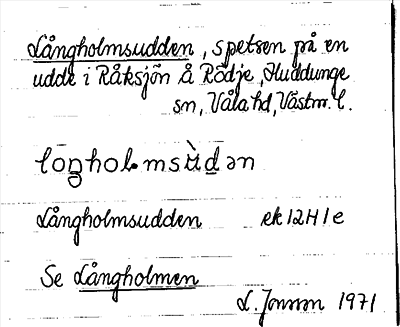 Långholmsudden, spetsen på en
udde i Råksjön Å Rödje, Huddunge
sn, Våla hd, Västm. l.
loŋhol.msùdən
Långholmsudden ek 12H1e
Se Långholmen
L. Jonsson 1971